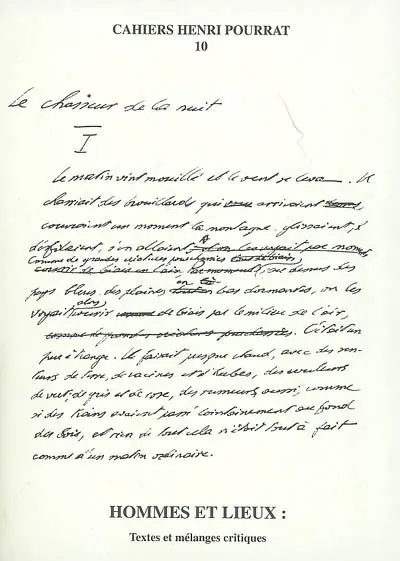 CAHIERS HENRI POURRAT
10
Le chasseur de la nuit
I
Le matin vint mouillé et le vent se leva. Il
charriait des brouillards qui arrivaient
couvraient un moment la montagne, glissaient,
défilaient, s'en allaient,
comme de grandes
au dessus des
pays bleus, des plaines en bas dormantes, on les
voyait alors courir de biais par le milieu de l'air,
C'était un
peu étrange. Il faisait presque chaud, avec des sen-
teurs de terre, de racines et d'herbes, des couleurs
de vert-de-gris et de rose, des rumeurs aussi, comme
si des trains avaient passé lointainement au fond
des bois, et rien de tout cela n'était tout à fait
comme d'un matin ordinaire.
HOMMES ET LIEUX :
Textes et mélanges critiques